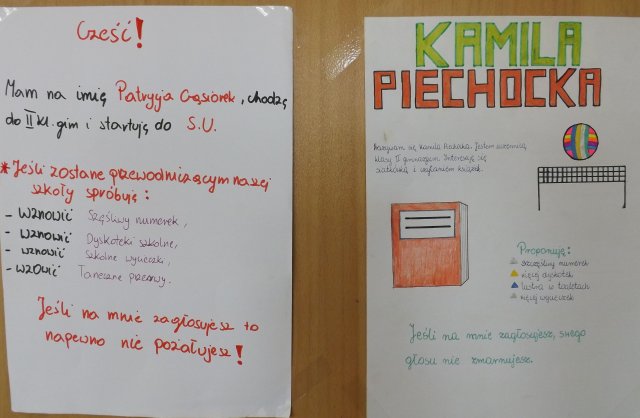 Cześć!
Mam na imię Patrycja Gąsiorek, chodzę
do II kl. gim i startuję do S.U.
* Jeśli zostanę przewodniczącym naszej
szkoły spróbuję:
- WZNOWIĆ Szczęśliwy numerek,
- WZNOWIĆ Dyskoteki szkolne,
- WZNOWIĆ Szkolne wycieczki,
- WZOWIĆ Taneczne przerwy.
Jeśli na mnie zagłosujesz to
napewno nie pożałujesz!
KAMILA
PIECHOCKA
Nazywam się Kamila Piechocka. Jestem uczennicą
klasy II gimnazjum. Interesuję się
siatkówką i czytaniem książek.
Proponuję:
szczęśliwy numerek
więcej dyskotek
lustra w toaletach
więcej wycieczek
Jeśli na mnie zagłosujesz, swego
głosu nie zmarnujesz.